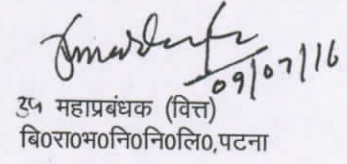 09/07/16
उप महाप्रबंधक (वित्त)
बि०रा०भ०नि०नि०लि०,पटना